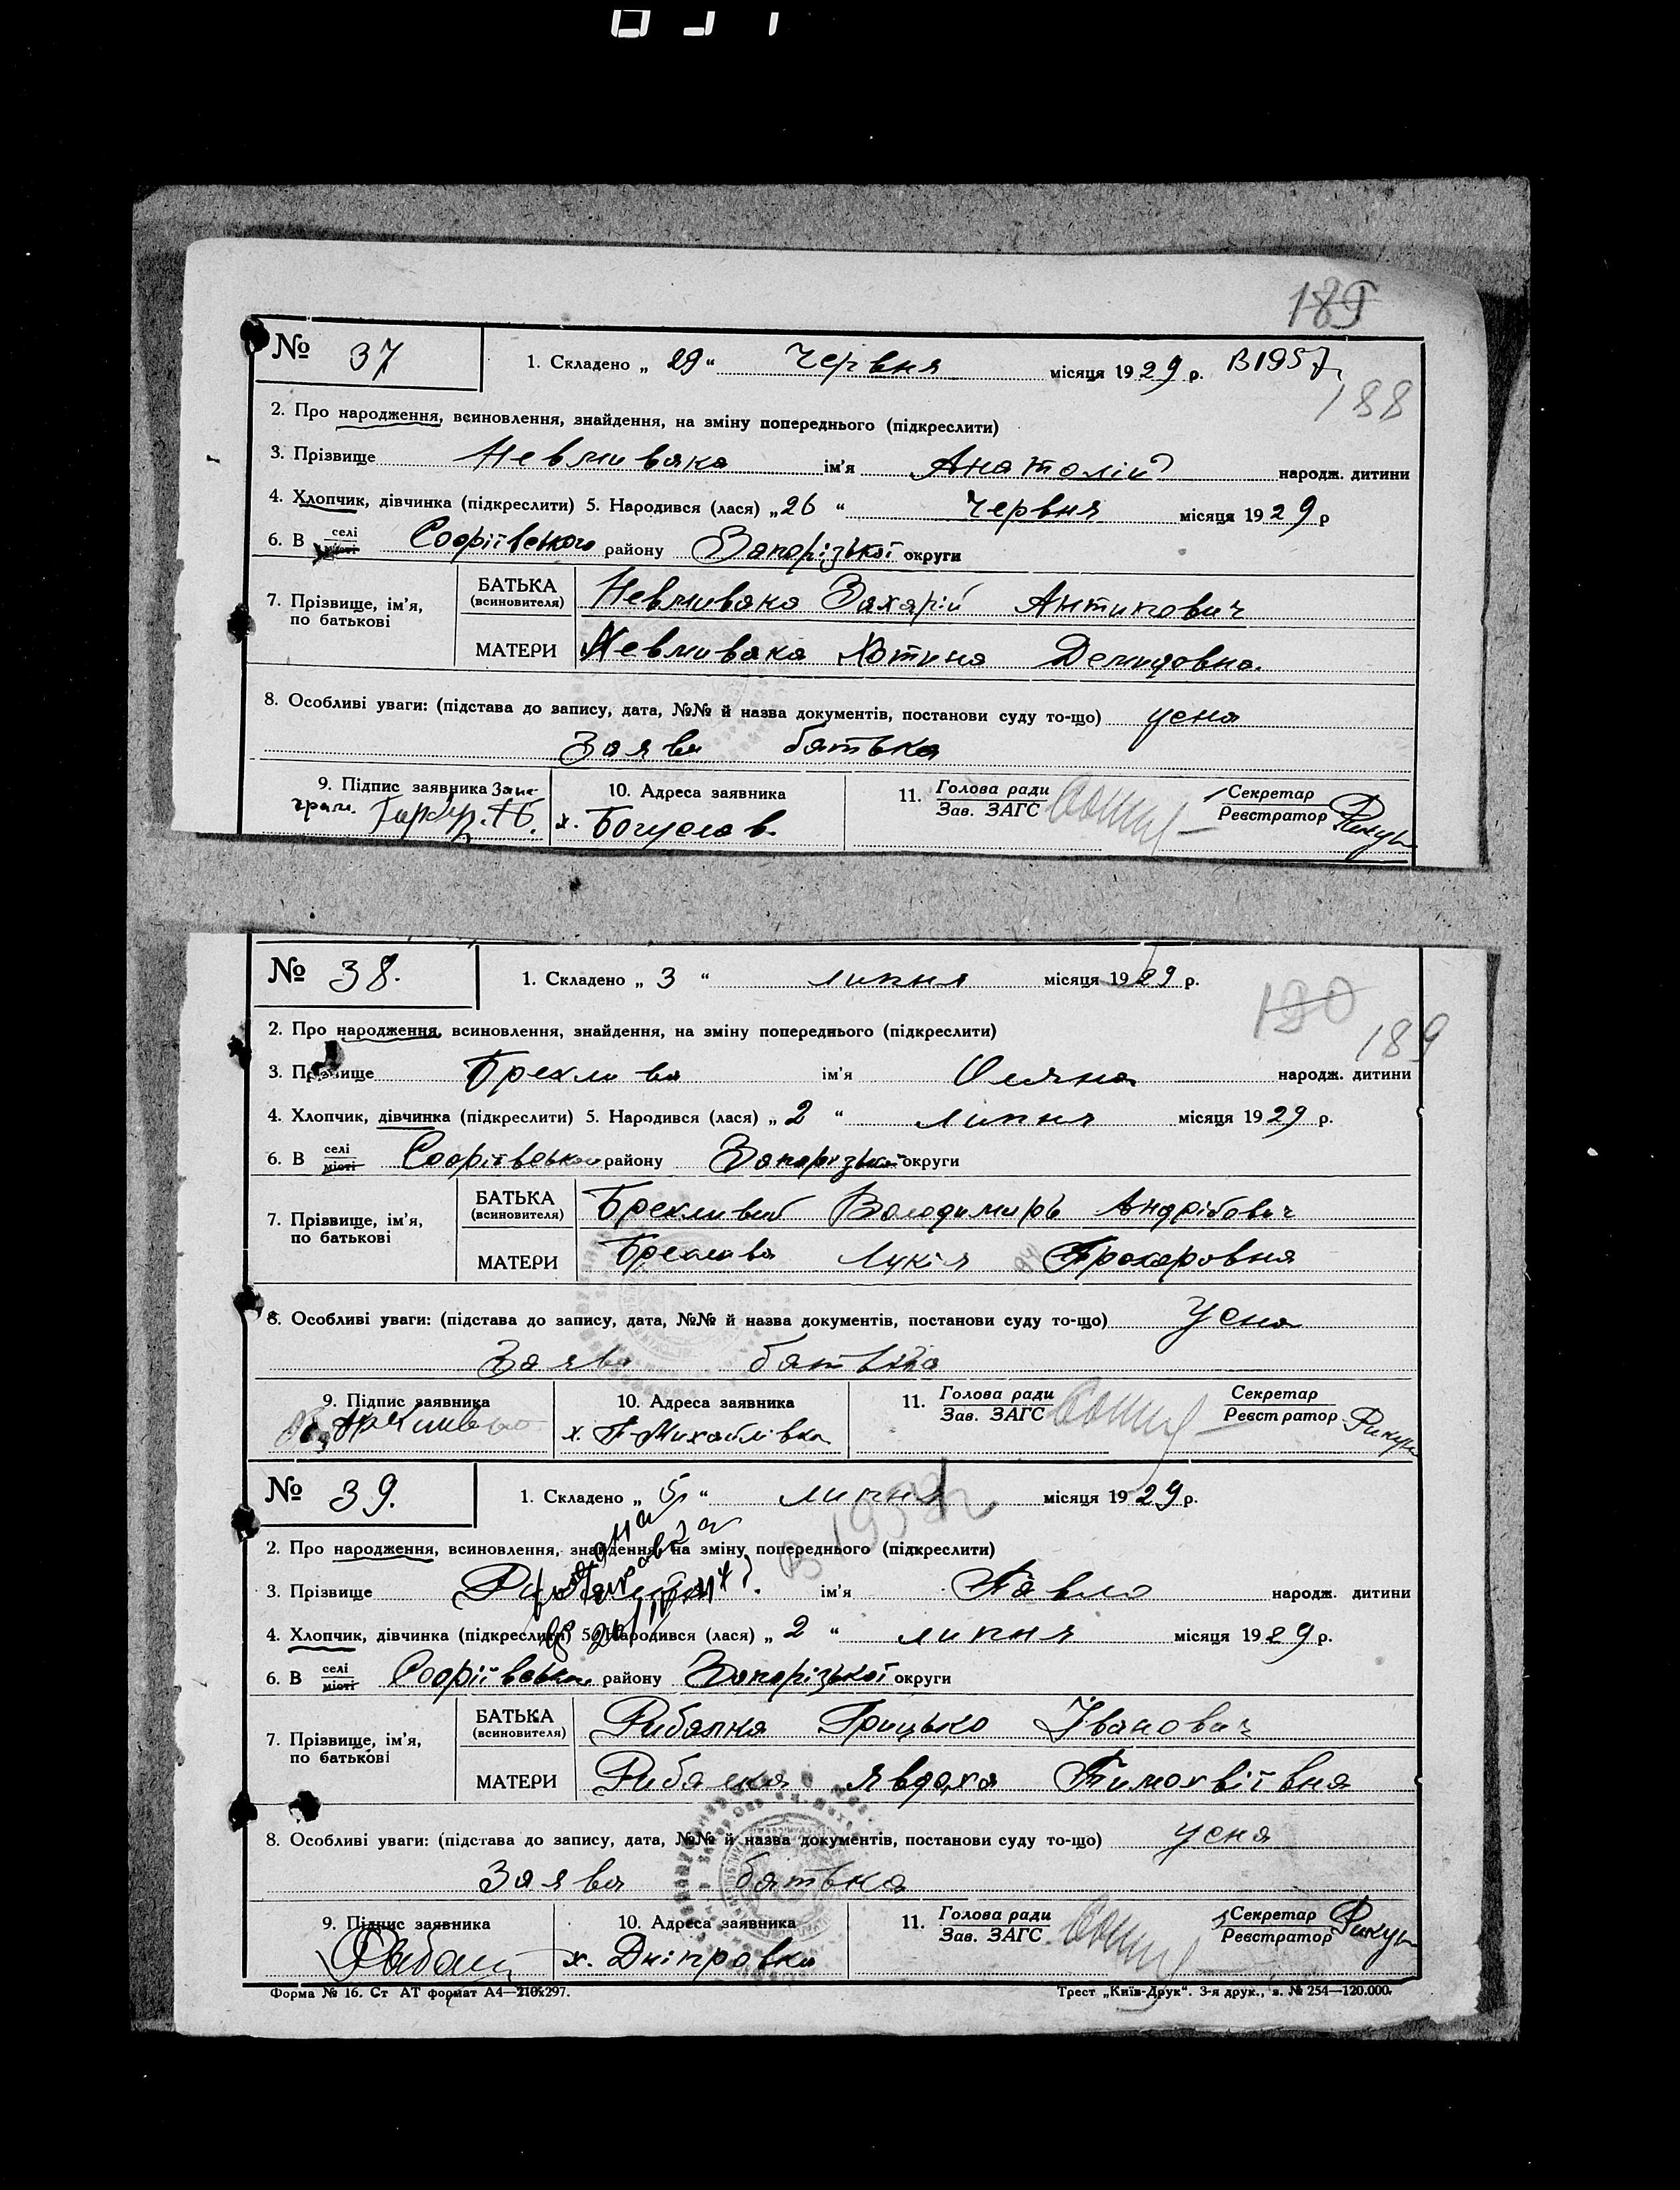 189
№ 37 1. Складено „ 29 “ Червня місяця 1929 р. В 1957
188
2. Про народження, всиновлення, знайдення, на зміну попереднього (підкреслити)
3. Прізвище Невмивака ім'я Анатолій народж. дитини
4. Хлопчик, дівчинка (підкреслити) 5. Народився (лася) „26 “ Червня місяця 1929 р
6. В селі місті Софіївського району Запорізької округи
7. Прізвище, ім'я, по батькові
БАТЬКА (всиновителя) Невмивака Захарій Антипович
МАТЕРИ Невмивака Хотина Демидовна.
8. Особливі уваги: (підстава до запису, дата, №№ й назва документів, постанови суду то-що) усна
Заява батька
9. Підпис заявника 10. Адреса заявника 11. Голова ради Секретар
Зав. ЗАГС Реєстратор
х. Богуслав.
№ 38. 1. Складено „ 3 “ липня місяця 1929 р.
190
189
2. Про народження, всиновлення, знайдення, на зміну попереднього (підкреслити)
3. Прізвище Брехлива ім'я Оляна народж. дитини
4. Хлопчик, дівчинка (підкреслити) 5. Народився (лася) „ 2 “ липня місяця 1929 р.
6. В селі місті Софіївського району Запорізької округи
7. Прізвище, ім'я, по батькові
БАТЬКА (всиновителя) Брехливий Володимиръ Андрійович
МАТЕРИ Брехлива Лукія Прохоровна
8. Особливі уваги: (підстава до запису, дата, №№ й назва документів, постанови суду то-що) Усна
Заява батька
9. Підпис заявника 10. Адреса заявника 11. Голова ради Секретар
Зав. ЗАГС Реєстратор
х. П-Михайлівка
№ 39. 1. Складено „ 5 “ липня місяця 1929 р.
2. Про народження, всиновлення, знайдення, на зміну попереднього (підкреслити)
3. Прізвище ім'я Павло народж. дитини
4. Хлопчик, дівчинка (підкреслити) 5. Народився (лася) „ 2 “ липня місяця 1929 р.
6. В селі місті Софіївського району Запорізької округи
7. Прізвище, ім'я, по батькові
БАТЬКА (всиновителя) Рибалка Грицько Іванович
МАТЕРИ Рибалка Явдоха Тимохвіївна
8. Особливі уваги: (підстава до запису, дата, №№ й назва документів, постанови суду то-що) усна
Заява батька
9. Підпис заявника 10. Адреса заявника 11. Голова ради Секретар
Зав. ЗАГС Реєстратор
х. Дніпровка
Форма № 16. Ст АТ формат А4—210х297. Трест „Київ-Друк“. 3-я друк., з. № 254—120.000.